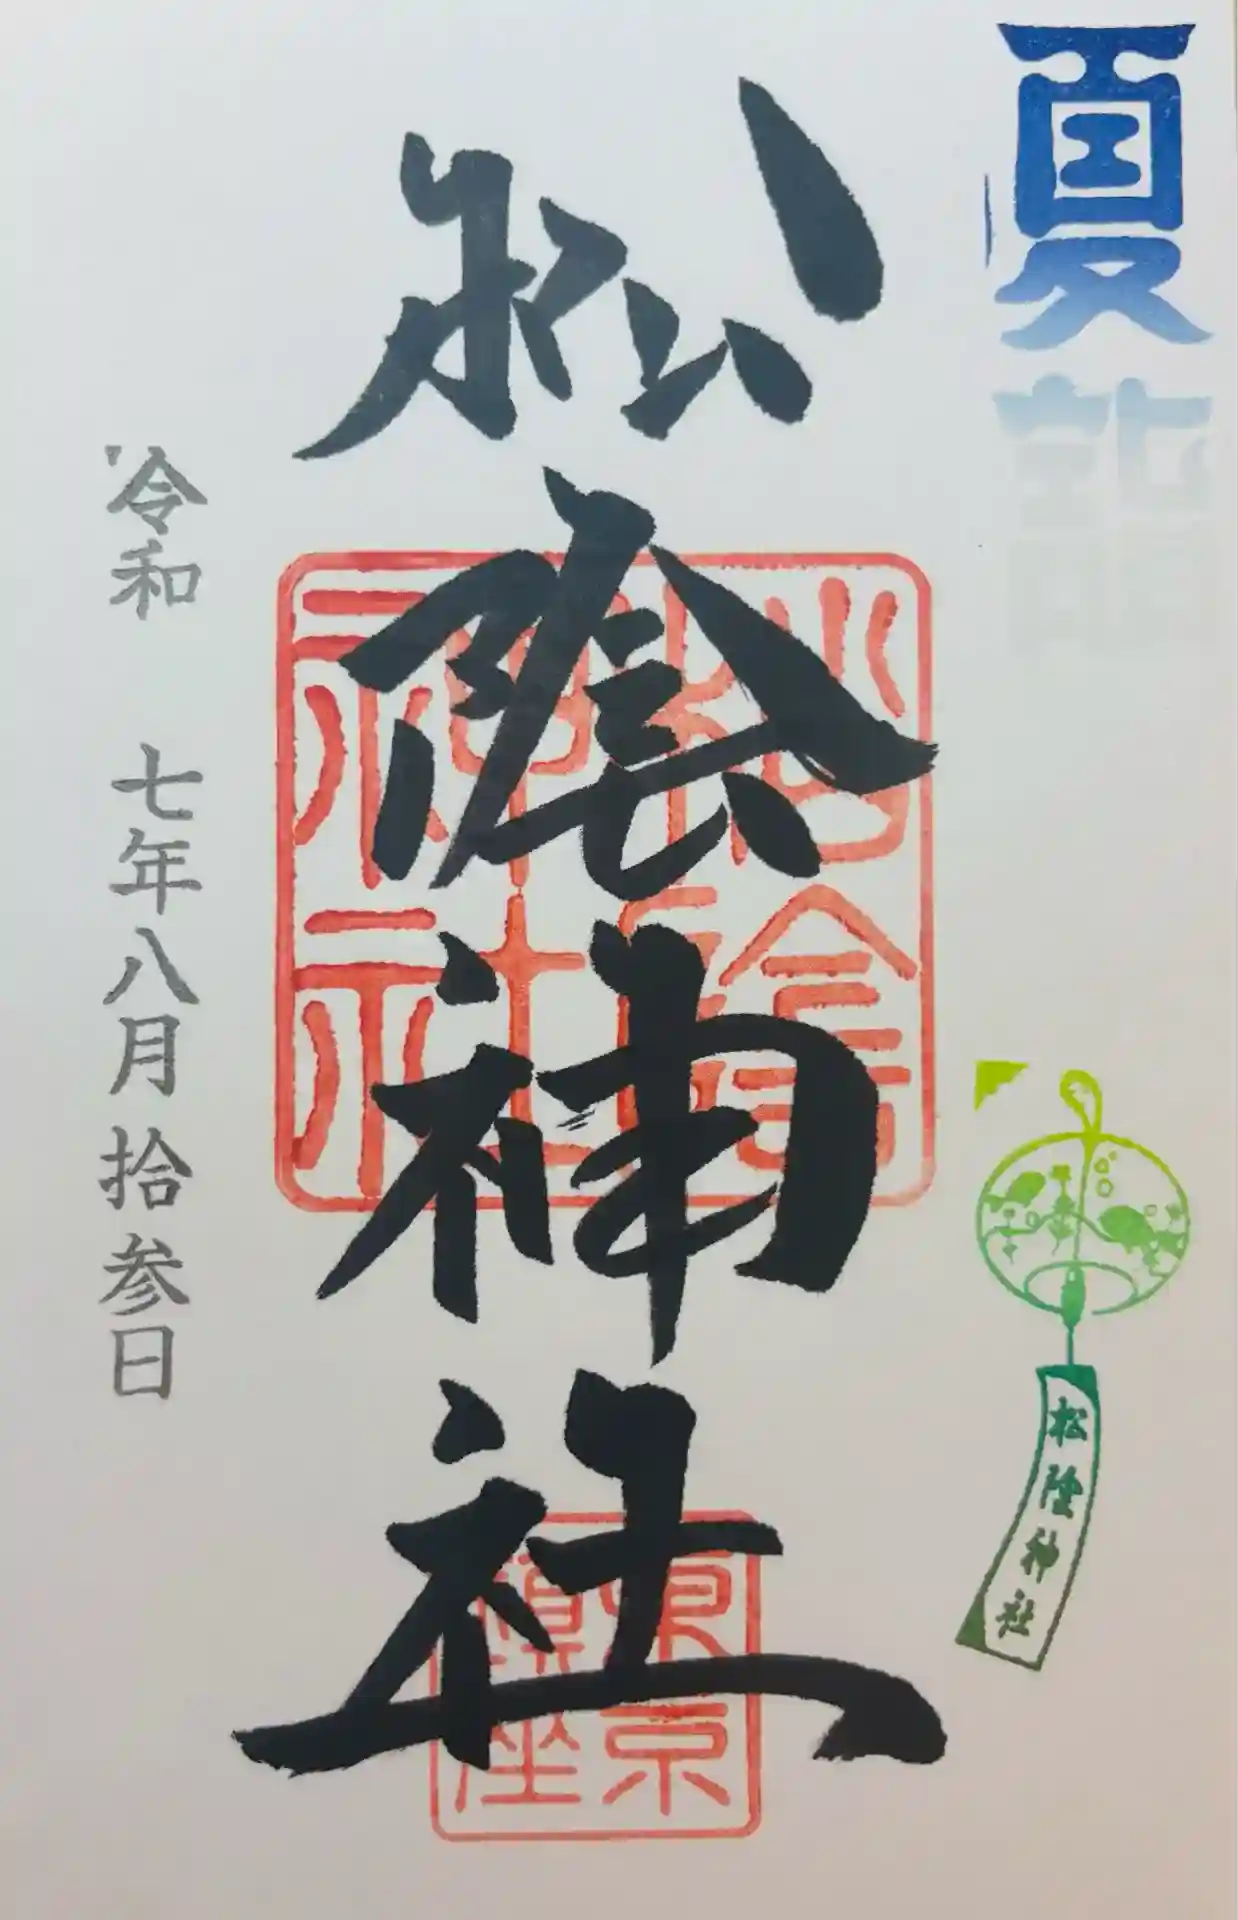 夏詣
松陰神社
松陰神社
松陰神社
東京
鎮座
令和 七年八月拾参日